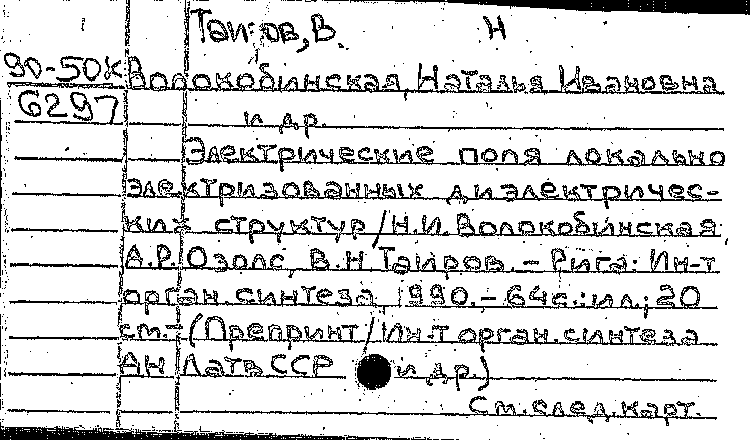 Таиров, В. Н
90-50к Волокобинская, Наталья Ивановна
6297 и др.
Электрические поля локально
электризованных диэлектричес-
ких структур / Н.И. Волокобинская
А.Р. Озолс, В.Н Таиров. – Рига: Ин-т
орган. синтеза, 1990. – 64с.: ил.; 20
см. – (Препринт / Ин-т орган. синтеза
АН ЛатвССР и др.)
См. след. карт.